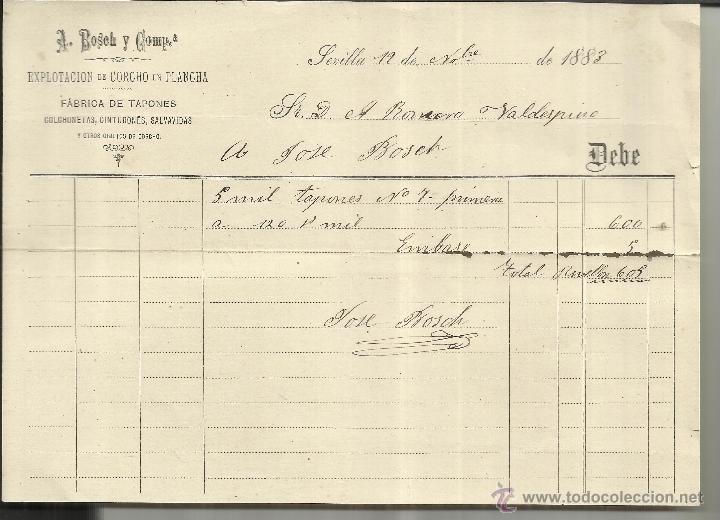 A. Bosch y Comp.ª
EXPLOTACION DE CORCHO EN PLANCHA
FÁBRICA DE TAPONES
COLCHONETAS, CINTURONES, SALVAVIDAS
Y OTROS OBJETOS DE CORCHO.
Sevilla 12 de Nbre de 1883
Sr. D. A Romero Valdespino
A José Bosch Debe
5 mil tapones No 7 primera
a 120 mil 600
Embase 5
Total 605
José Bosch
www.todocoleccion.net